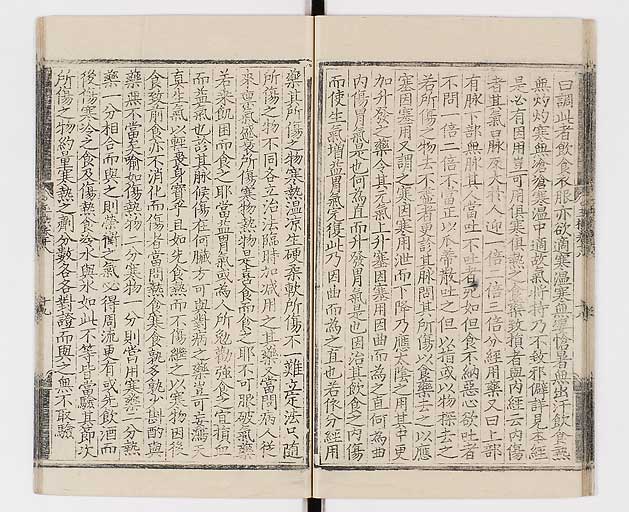 曰調此者飲食衣服亦欲適寒溫寒無凄愴暑無出汗飲食熱
無灼灼寒無滄滄寒溫中適故氣將持乃不致邪僻詳見本經
是必有因用豈可用俱寒俱熱之食藥致損者與內經云內傷
者其氣口脉反大於人迎一倍二倍三倍分經用藥又曰上部
有脉下部無脉其人當吐不吐者死如但食不納惡心欲吐者
不問一倍二倍不當正以瓜蒂散吐之但以指或以物探去之
若所傷之物去不盡者更診其脉問其所傷以食藥去之以應
塞因塞用又謂之寒因寒用泄而下降乃應太陰之用其中更
加升發之藥令其元氣上升塞因塞用因曲而為之直何為曲
內傷胃氣是也何為直而升發胃氣是也因治其飲食之內傷
而使生氣增益胃氣完復此乃因曲而為之直也若依分經用
藥其所傷之物寒熱溫凉生硬柔軟所傷不一難立定法只隨
所傷之物不同各立治法臨時加減用之其藥又當問病人從
來稟氣盛衰所傷寒物熱物是喜食而食之耶不可服破氣藥
若乘飢困而食之耶當益胃氣或為人所勉勸強食之宜損血
而益氣也診其脉候傷在何臟方可與對病之藥豈可妄瀉天
真生氣以輕喪身寶乎且如先食熱而不傷繼之以寒物因後
食致前食亦不消化而傷者當問熱食寒食孰多孰少斟酌與
藥無不當矣喻如傷熱物二分寒物一分則當用寒藥二分熱
藥一分相合而與之則榮衛之氣必得周流更有或先飲酒而
後傷寒冷之食及傷熱食冷水與氷如此不等皆當驗其節次
所傷之物約量寒熱之劑分數各各對證而與之無不取驗